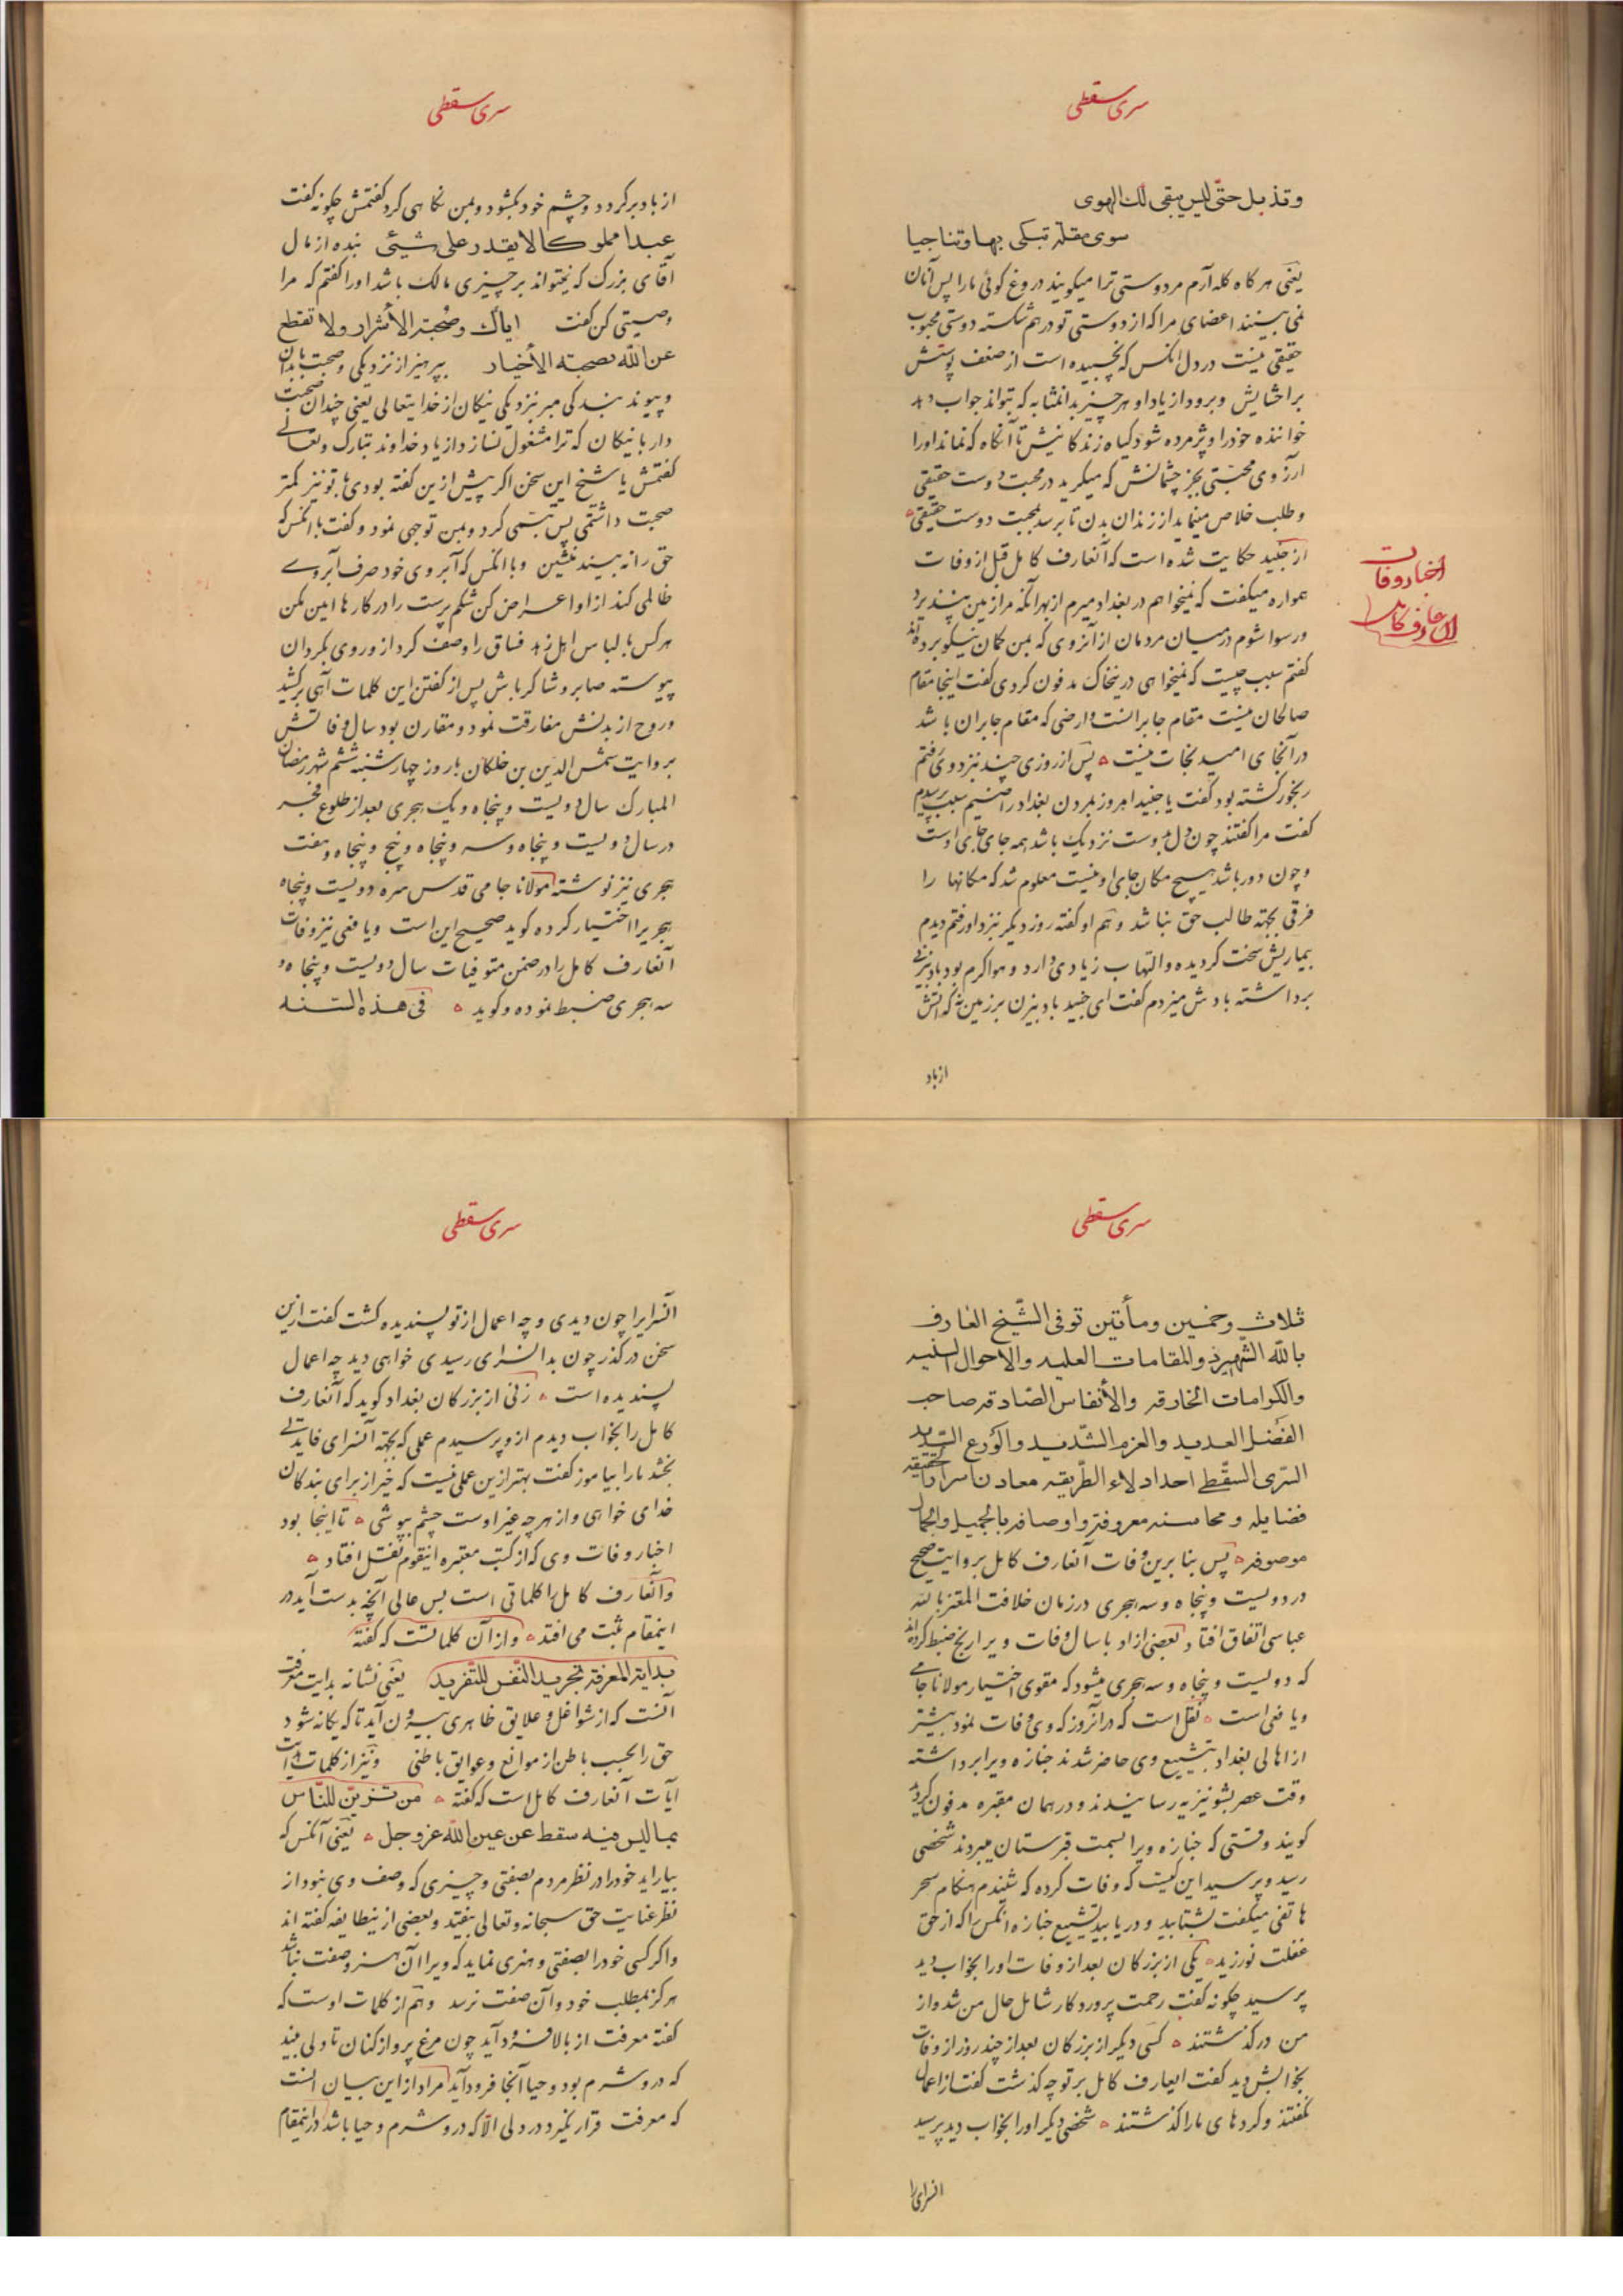 سری سقطی
وتذبل حتّی لیس یبقی لك الهوی
سوی مقلة تبکی بها وتناجیا
یعنی هر کاه کله آرم مر دوستی ترا میکویند دروغ کوئی ما را پس آنان
نمی بینند اعضای مرا که از دوستی تو در هم شکسته دوستی محبوب
حقیقی نیست در دل انکس که نچسبیده است از ضعف پوستش
بر احشایش و برود از یاد او هر چیز بدانمثابه که نتواند جواب دهد
خواننده خود را و پژمرده شود کیاه زندکانیش تا آنکاه که نماند او را
آرزوی محبتی بجز چشمانش که میکرید در محبت دوست حقیقی
و طلب خلاص مینماید از زندان بدن تا برسد بمحبت دوست حقیقی
از جنید حکایت شده است که آنعارف کامل قبل از وفات
همواره میکفت که نمیخواهم در بغداد میرم از بهر آنکه مرا زمین نپذیرد
و رسوا شوم در میان مردمان از آنروی که بمن کمان نیکو برده‌اند
کفتم سبب چیست که نمیخواهی در نیخاک مدفون کردی کفت اینجا مقام
صالحان نیست مقام جابرانست و ارضی که مقام جابران باشد
در آنجای امید نجات نیست پس از روزی چند نزد وی رفتم
رنجور کشته بود کفت یا جنید امروز بمردن بغداد راضیم سبب پرسیدم
کفت مرا کفتند چون دل بدوست نزدیك باشد همه جای جای اوست
و چون دور باشد هیچ مکان جای او نیست معلوم شد که مکانها را
فرقی بجهة طالب حق نباشد و هم او کفته روز دیکر نزد او رفتم دیدم
بیماریش سخت کردیده و التهاب زیادی دارد و هوا کرم بود بادبزنی
برداشته بادش میزدم کفت ای جنید بادبیزن بر زمین نه که آتش
از باد
اخبار وفات
آن عارف کامل
سری سقطی
از باد برکردد و چشم خود بکشود و بمن نکاهی کرد کفتمش چکونه کفت
عبدا مملوکا لا یقدر علی شیئی بنده از مال
آقای بزرك که نتواند بر چیزی مالك باشد او را کفتم که مرا
وصیتی کن کفت ایاك وصحبة الأشرار ولا تقطع
عن اللّه بصحبة الأخیار بپرهیز از نزدیکی و صحبت بدان
و پیوند بندکی مبر نزدیکی نیکان از خدایتعالی یعنی چندان صحبت
دار با نیکان که ترا مشغول نسازد از یاد خداوند تبارك و تعالی
کفتمش یا شیخ این سخن اکر پیش ازین کفته بودی با تو نیز کمتر
صحبت داشتمی پس تبسمی کرد و بمن توجهی نمود و کفت با انکس که
حق را نه بیند منشین و با انکس که آبروی خود صرف آبروی
ظالمی کند از او اعراض کن شکم پرست را در کارها امین مکن
هر کس با لباس اهل زهد فساق را وصف کرد از و روی بکردان
پیوسته صابر و شاکر باش پس از کفتن این کلمات آهی برکشید
و روح از بدنش مفارقت نمود و مقارن بود سال وفاتش
بروایت شمس الدین بن خلکان با روز چهارشنبه ششم شهر رمضان
المبارك سال دویست و پنجاه و یك هجری بعد از طلوع فجر
در سال دویست و پنجاه و سه و پنجاه و پنج و پنجاه و هفت
هجری نیز نوشته مولانا جامی قدس سره دویست و پنجاه
هجری را اختیار کرده کوید صحیح این است و یافعی نیز وفات
آنعارف کامل را در ضمن متوفیات سال دویست و پنجاه و
سه هجری ضبط نموده و کوید فی هذه السّنه
سری سقطی
ثلاث وخمسین ومأتین توفی الشّیخ العارف
باللّه الشّهیر ذو المقامات العلیه والاحوال السّنیه
والکرامات الخارقه والأنفاس الصّادقه صاحب
الفضل العدید والعزم الشّدید والورع السّدید
السّری السّقطی احد ادلاء الطّریقه معادن اسرار الحقیقه
فضایله ومحاسنه معروفة واوصافه بالجمیل والجمال
موصوفه پس بنابرین وفات آنعارف کامل بروایت صحیح
در دویست و پنجاه و سه هجری در زمان خلافت المعتز باللّه
عباسی اتفاق افتاد بعضی از ادبا سال وفات ویرا ریخ ضبط کرده‌اند
که دویست و پنجاه و سه هجری میشود که مقوی اختیار مولانا جامی
و یافعی است نقل است که در آنروز که وی وفات نمود بیشتر
از اهالی بغداد بتشییع وی حاضر شدند جنازه ویرا برداشته
وقت عصر بشونیزیه رسانیدند و در همان مقبره مدفون کردند
کویند وقتی که جنازه ویرا بسمت قبرستان میبردند شخصی
رسید و پرسید این کیست که وفات کرده که شنیدم هنکام سحر
هاتفی میکفت بشتابید و دریابید تشییع جنازه انکس را که از حق
غفلت نورزید یکی از بزرکان بعد از وفات او را بخواب دید
پرسید چکونه کفت رحمت پروردکار شامل حال من شد و از
من درکذشتند کسی دیکر از بزرکان بعد از چند روز از وفات
بخوابش دید کفت ایعارف کامل بر تو چه کذشت کفت از اعمال
نکفتند و کردهای ما را کذشتند شخص دیکر او را بخواب دید پرسید
انسرای را
سری سقطی
آنسرایرا چون دیدی و چه اعمال از تو پسندیده کشت کفت ازین
سخن درکذر چون بدانسرای رسیدی خواهی دید چه اعمال
پسندیده است زنی از بزرکان بغداد کوید که آنعارف
کامل را بخواب دیدم ازو پرسیدم عملی که بجهة آنسرای فایدتی
بخشد ما را بیاموز کفت بهتر ازین عملی نیست که خیر از برای بندکان
خدای خواهی و از هر چه غیر اوست چشم بپوشی تا اینجا بود
اخبار وفات وی که از کتب معتبره اینقوم بنقل افتاد
و آنعارف کامل را کلماتی است بس عالی آنچه بدست آید در
اینمقام ثبت می افتد و از آن کلماتست که کفته
بدایة المعرفة تجرید النّفس للتّفرید یعنی نشانه بدایت معرفت
آنست که از شواغل و علایق ظاهری بیرون آید تا که یکانه شود
حق را بحسب باطن از موانع و عوایق باطنی و نیز از کلمات هدایت
آیات آنعارف کامل است که کفته من تزیّن للنّاس
بما لیس فیه سقط عن عین اللّه عز و جل یعنی آنکس که
بیاراید خود را در نظر مردم بصفتی و چیزی که وصف وی نبود از
نظر عنایت حق سبحانه و تعالی بیفتد و بعضی از ینطایفه کفته اند
و اکر کسی خود را بصفتی و هنری نماید که ویرا آن هنر و صفت نباشد
هرکز بمطلب خود و آن صفت نرسد و هم از کلمات اوست که
کفته معرفت از بالا فرود آید چون مرغ پرواز کنان تا دلی بیند
که در و شرم بود و حیا آنجا فرود آید مراد از این بیان انست
که معرفت قرار نکیرد در دلی الّا که در و شرم و حیا باشد در اینمقام